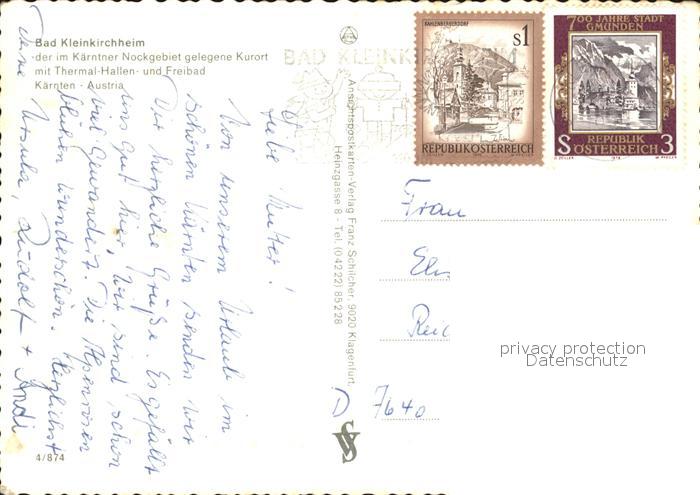 Bad Kleinkirchheim
der im Kärntner Nockgebiet gelegene Kurort
mit Thermal-Hallen- und Freibad
Kärnten - Austria
BAD KLEINK
KAHLENBERGERDORF
s1
REPUBLIK ÖSTERREICH
700 JAHRE STADT
GMUNDEN
REPUBLIK
S ÖSTERREICH 3
Liebe Mutter!
Von unserem Urlaub im
schönen Kärnten senden wir
Dir herzliche Grüße. Es gefällt
uns gut hier, wir sind schon
viel gewandert. Die Alpenrosen
blühen wunderschön. Herzlichst
Deine Ursula, Rudolt + Andi
Ansichtspostkarten-Verlag Franz Schilcher, 9020 Klagenfurt,
Heinzgasse 8 - Tel. (04222) 85228
Frau
Els
Reic
privacy protection
Datenschutz
D 7640
4/874